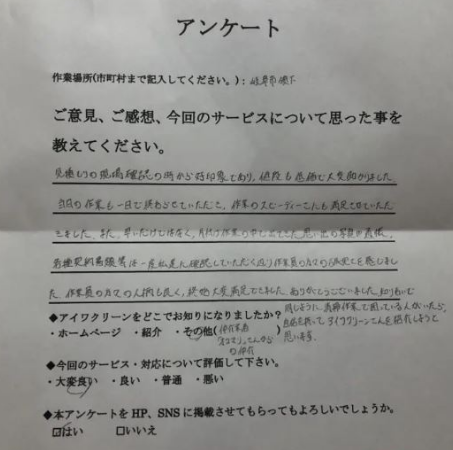 アンケート
作業場所(市町村まで記入してください。)：岐阜市
ご意見、ご感想、今回のサービスについて思った事を
教えてください。
見積もりの現場確認の時から好印象であり、値段も低価で大変助かりました
当日の作業も一日で終わらせていただき、作業のスピーディーさにも満足させていただ
きました。また、早いだけではなく、片付け作業の中で出てきた思い出の写真や
契約書類等は一度私達に確認していただく
た。作業員の方々の人柄も良く、終始大変満足できました。ありがとうございました。知り合いで
同じように、清掃作業で困っている人がいたら、
自信を持ってアイワクリーンさんを紹介しようと
思います。
◆アイワクリーンをどこでお知りになりましたか?
・ホームページ ・紹介 ・その他(仲介業者
さんから
の紹介
◆今回のサービス・対応について評価して下さい。
・大変良い ・良い ・普通 ・悪い
◆本アンケートをHP、SNSに掲載させてもらってもよろしいでしょうか。
☑はい □いいえ